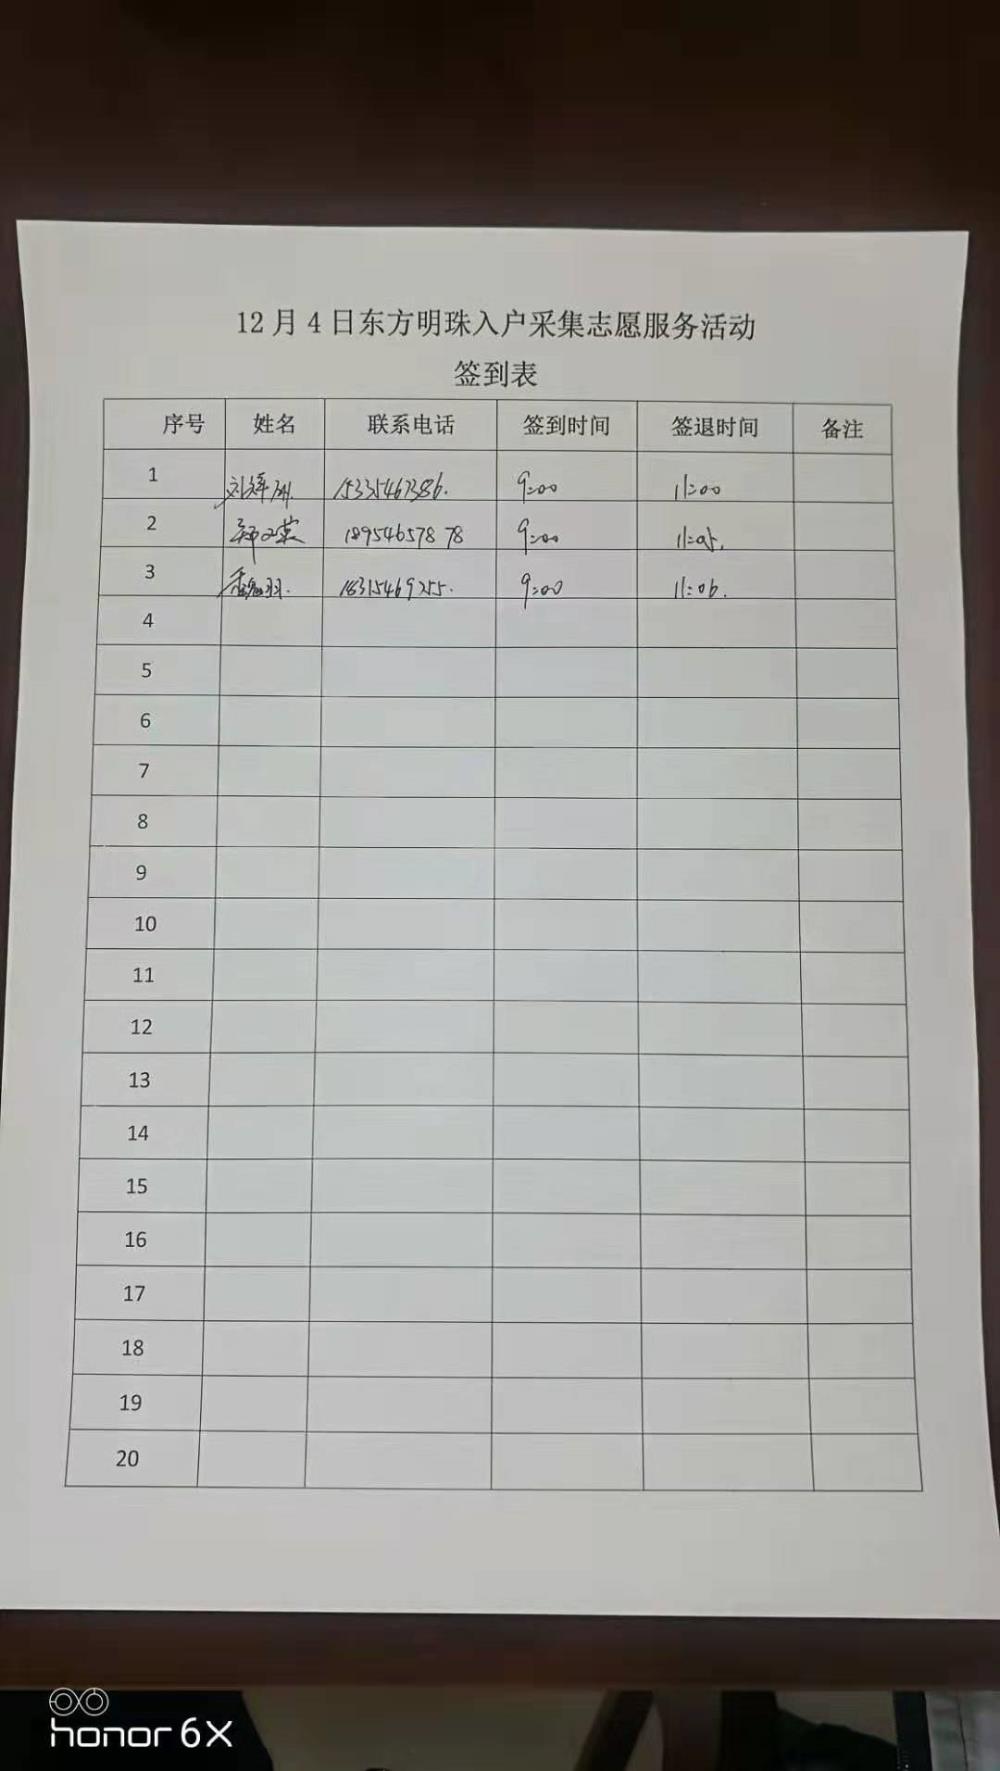 12月4日东方明珠入户采集志愿服务活动
签到表
序号 姓名 联系电话 签到时间 签退时间 备注
1 15335467386. 9:00 11:00
2 18954657878 9:00 11:05.
3 18315469255. 9:00 11:06.
4
5
6
7
8
9
10
11
12
13
14
15
16
17
18
19
20
honor 6X